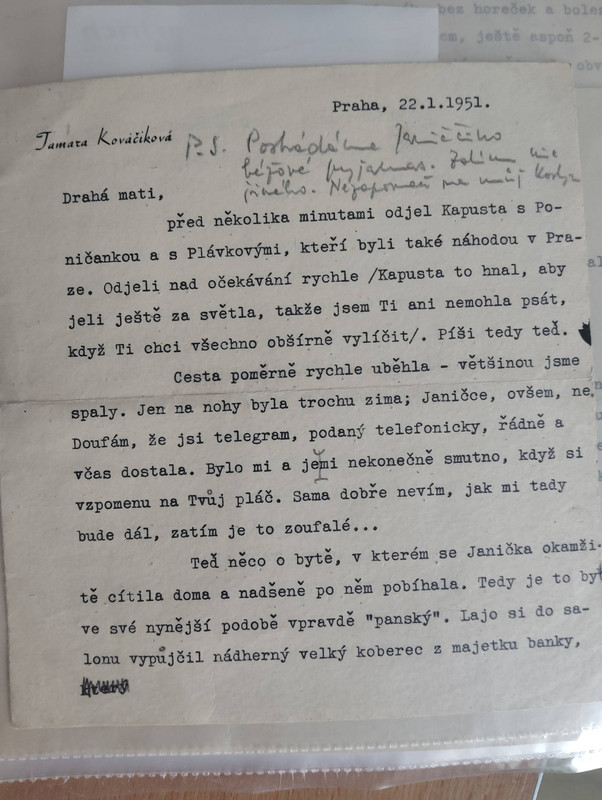 bez horeček a boles
om, ještě aspoň 2-
obv
Praha, 22.1.1951.
Tamara Kováčiková
P.S. Postrádáme Janiččino
béžové pyjamas. Zatím nic
jiného. Nezapomeň na můj
Drahá mati,
před několika minutami odjel Kapusta s Po-
ničankou a s Plávkovými, kteří byli také náhodou v Pra-
ze. Odjeli nad očekávání rychle /Kapusta to hnal, aby
jeli ještě za světla, takže jsem Ti ani nemohla psát,
když Ti chci všechno obšírně vylíčit/. Píši tedy teď.
Cesta poměrně rychle uběhla - většinou jsme
spaly. Jen na nohy byla trochu zima; Janičce, ovšem, ne.
Doufám, že jsi telegram, podaný telefonicky, řádně a
včas dostala. Bylo mi a jemi nekonečně smutno, když si
vzpomenu na Tvůj pláč. Sama dobře nevím, jak mi tady
bude dál, zatím je to zoufalé...
Teď něco o bytě, v kterém se Janička okamži-
tě cítila doma a nadšeně po něm pobíhala. Tedy je to byt
ve své nynější podobě vpravdě "panský". Lajo si do sa-
lonu vypůjčil nádherný velký koberec z majetku banky,